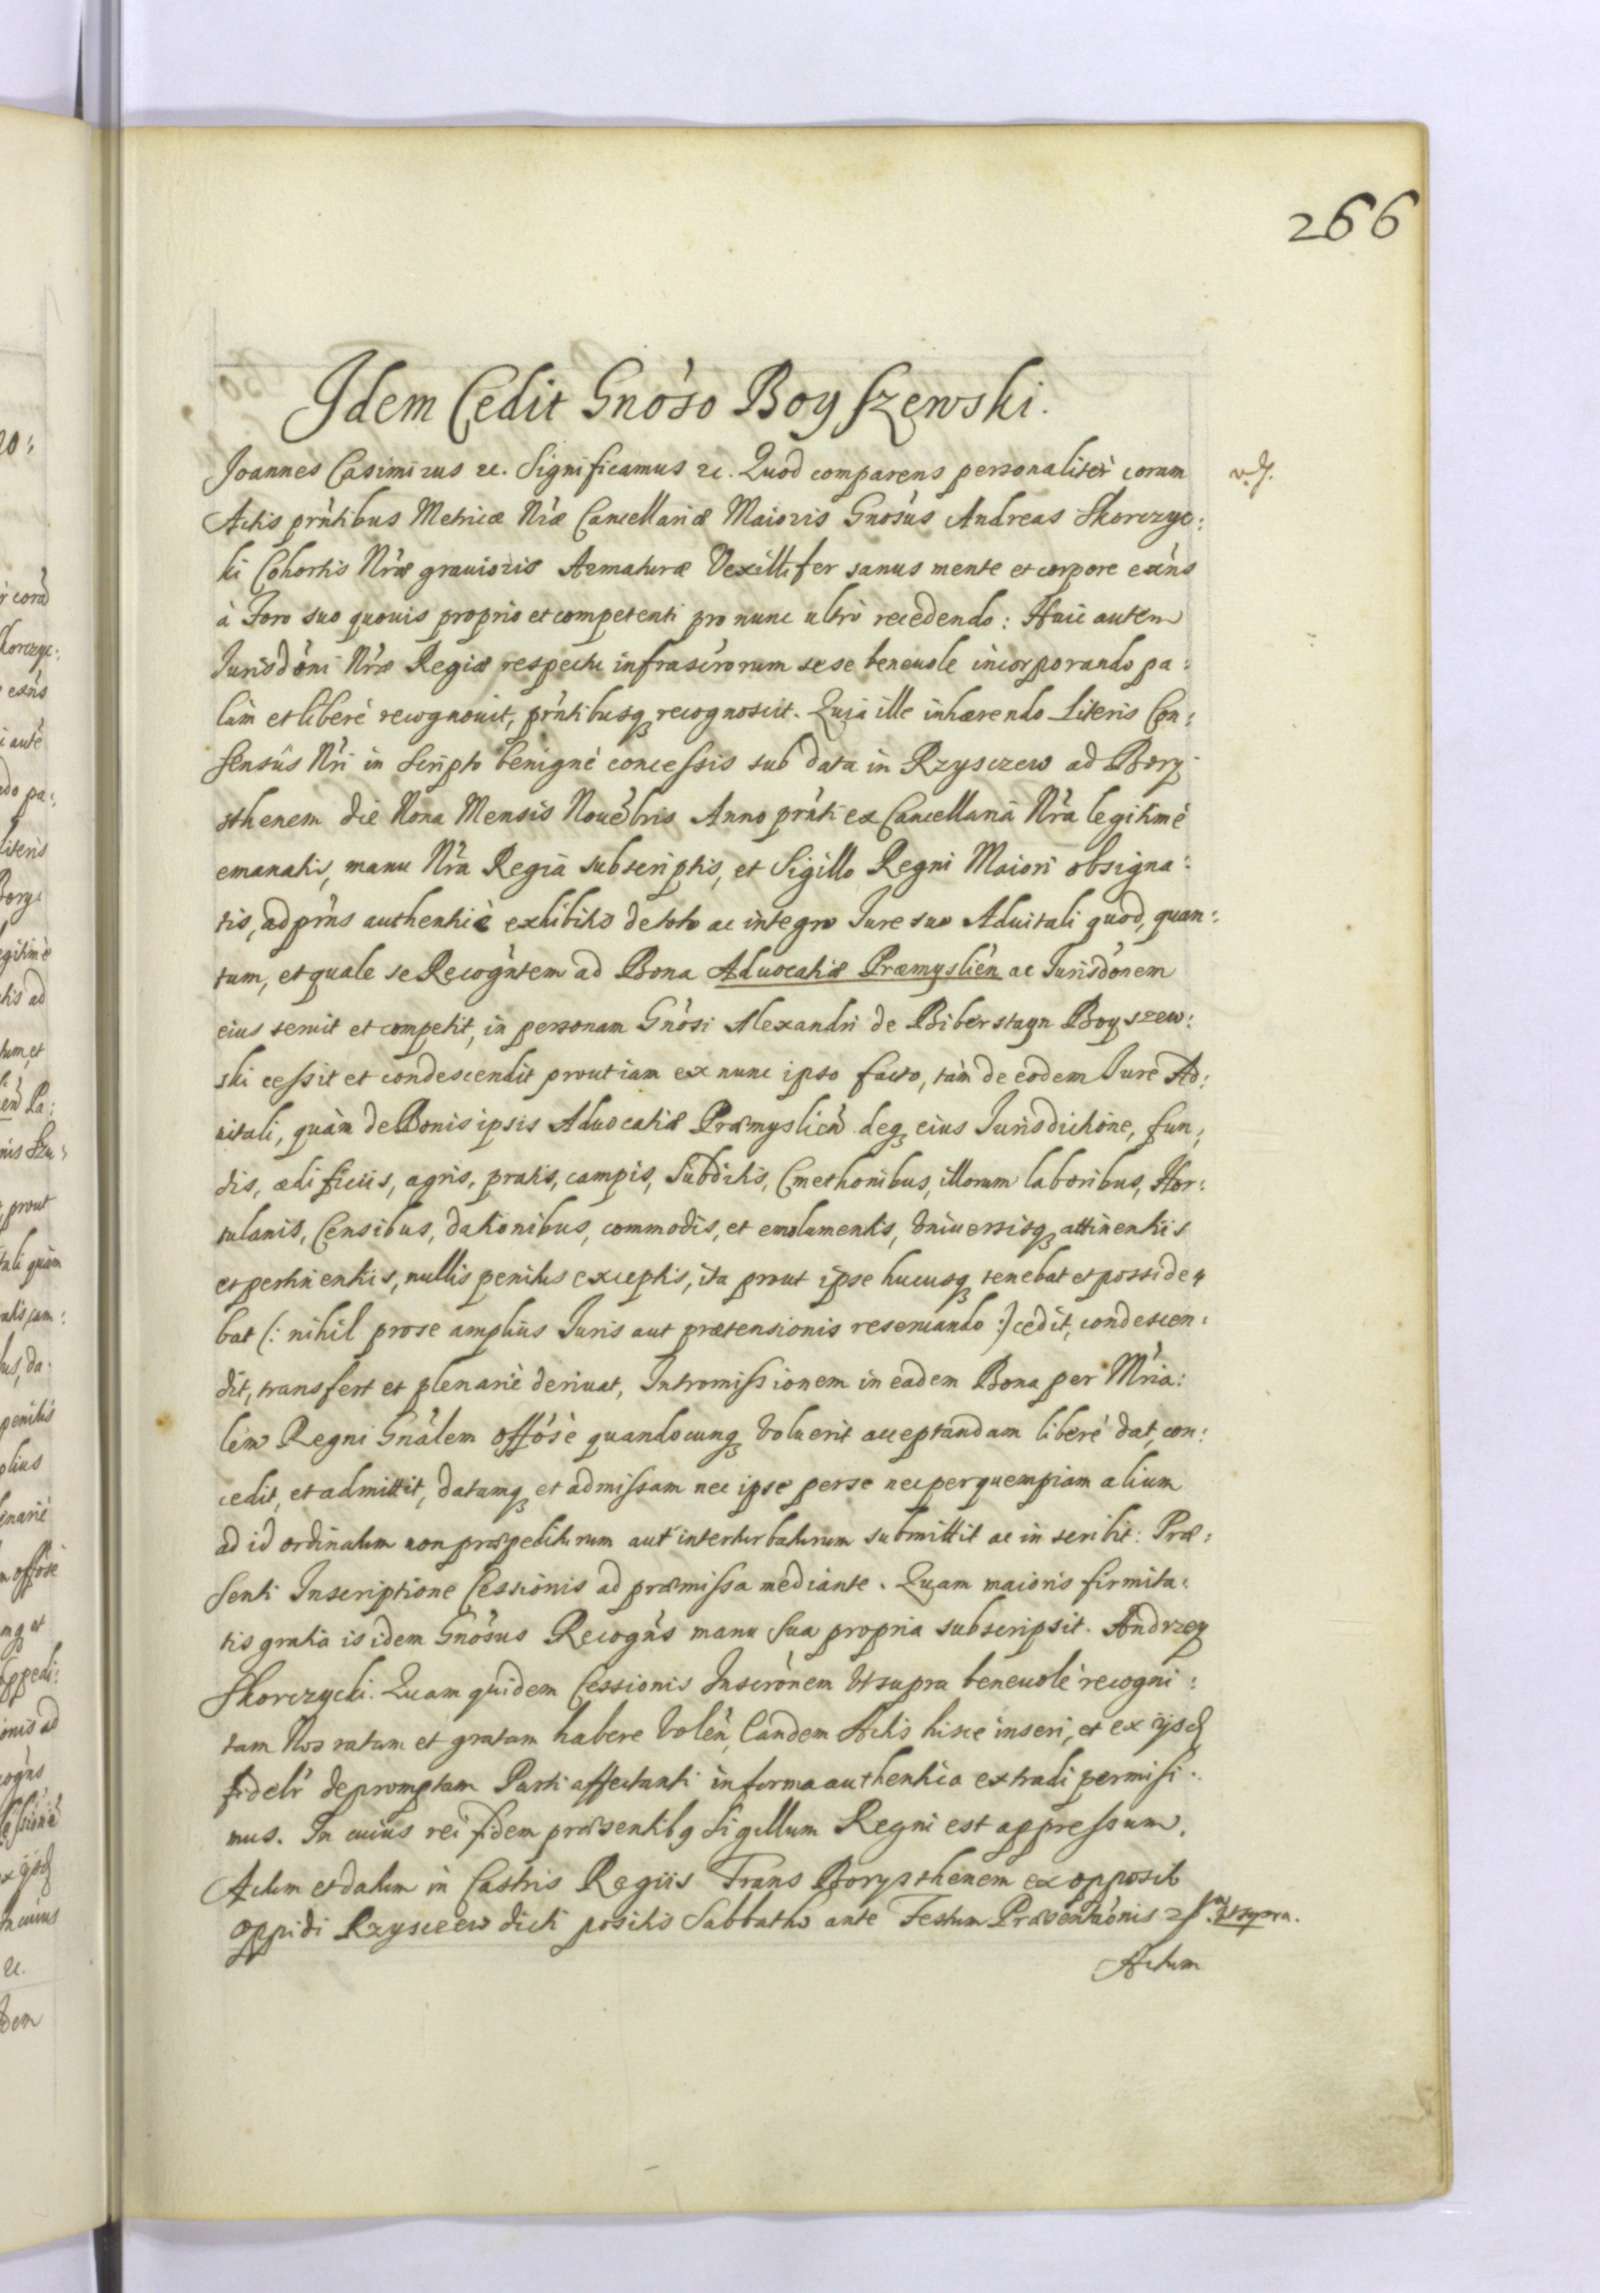 266
Idem Cedit Gnoso Boyszewski.
Joannes Casimirus etc. Significamus etc. Quod comparens personalitèr coram
Actis prntibus Metricæ Nræ Cancellariæ Maioris Gnosus Andreas Skorczyc:
ki Cohortis Nræ grauioris Armaturæ Vexillifer sanus mente et corpore exns
à Foro suo quouis proprio et competenti pro nunc ultrò recedendo: Huic autem
Jurisdoni Nræ Regiæ respectu infrascrorum sese beneuole incorporando pa:
làm et liberè recognouit, prntibusq recognoscit. Quia ille inhærendo Literis Con:
sensûs Nri in Scripto benignè concessis sub data in Rzysczew ad Bory
sthenem die Nona Mensis Nouebris Anno prnti ex Cancellariâ Nrâ legitimè
emanatis, manu Nrâ Regiâ subscriptis, et Sigillo Regni Maiori obsigna:
tis, ad prns authenticè exhibitis de toto ac integro Jure suo Aduitali quod, quan:
tum, et quale se Recogntem ad Bona Aduocatiæ Præmyslien ac Jurisdonem
eius seruit et competit, in personam Gnosi Alexandri de Biberstayn Boyszew:
ski cessit et condescendit prout iam ex nunc ipso facto, tàm de eodem Jure Ad:
uitali, quàm de Bonis ipsis Aduocatiæ Præmyslien deq eius Jurisdictione, fun:
dis, ædificiis, agris, pratis, campis, Subditis, Cmethonibus, illorum laboribus, Hor:
tulanis, Censibus, dationibus, commodis, et emolumentis, Vniuersisq attinentiis
et pertinentiis, nullis penitus exceptis, ita prout ipse hucusq tenebat et posside
bat (: nihil pro se amplius Juris aut prætensionis reseruando :) cedit, condescen:
dit, transfert et plenariè deriuat, Intromissionem in eadem Bona per Mria:
lem Regni Gnalem offosè quandocunq Voluerit acceptandam liberè dat, con:
cedit, et admittit, datamq et admissam nec ipse per se nec per quempiam alium
ad id ordinatum non præpediturum aut interturbaturum submittit ac inscribit: Præ:
senti Inscriptione Cessionis ad præmissa mediante. Quam maioris firmita:
tis gratia is idem Gnosus Recogns manu sua propria subscripsit. Andrzey
Skorczycki. Quam quidem Cessionis Inscronem Vt supra beneuolè recogni:
tam Nos ratam et gratam habere Volen, Eandem Actis hisce inseri, et ex ijsd
fidelr depromptam Parti affectanti in forma authentica extradi permisi:
mus. In cuius rei fidem præsentibq Sigillum Regni est appressum.
Actum et datum in Castris Regiis Trans Borysthenem ex opposito
Oppidi Rzysczew dicti positis Sabbatho ante Festum Præsentaonis Vt supra.
Actum